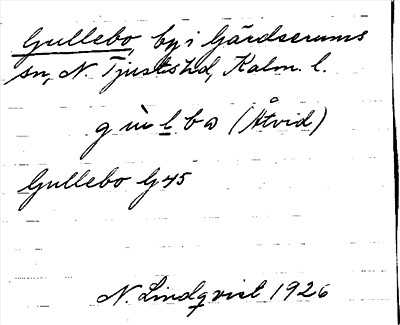 Gullebo, by i Gärdserums
sn, N. Tjusts hd, Kalm. l.
(Åtvid)
Gullebo G 45
N. Lindqvist 1926